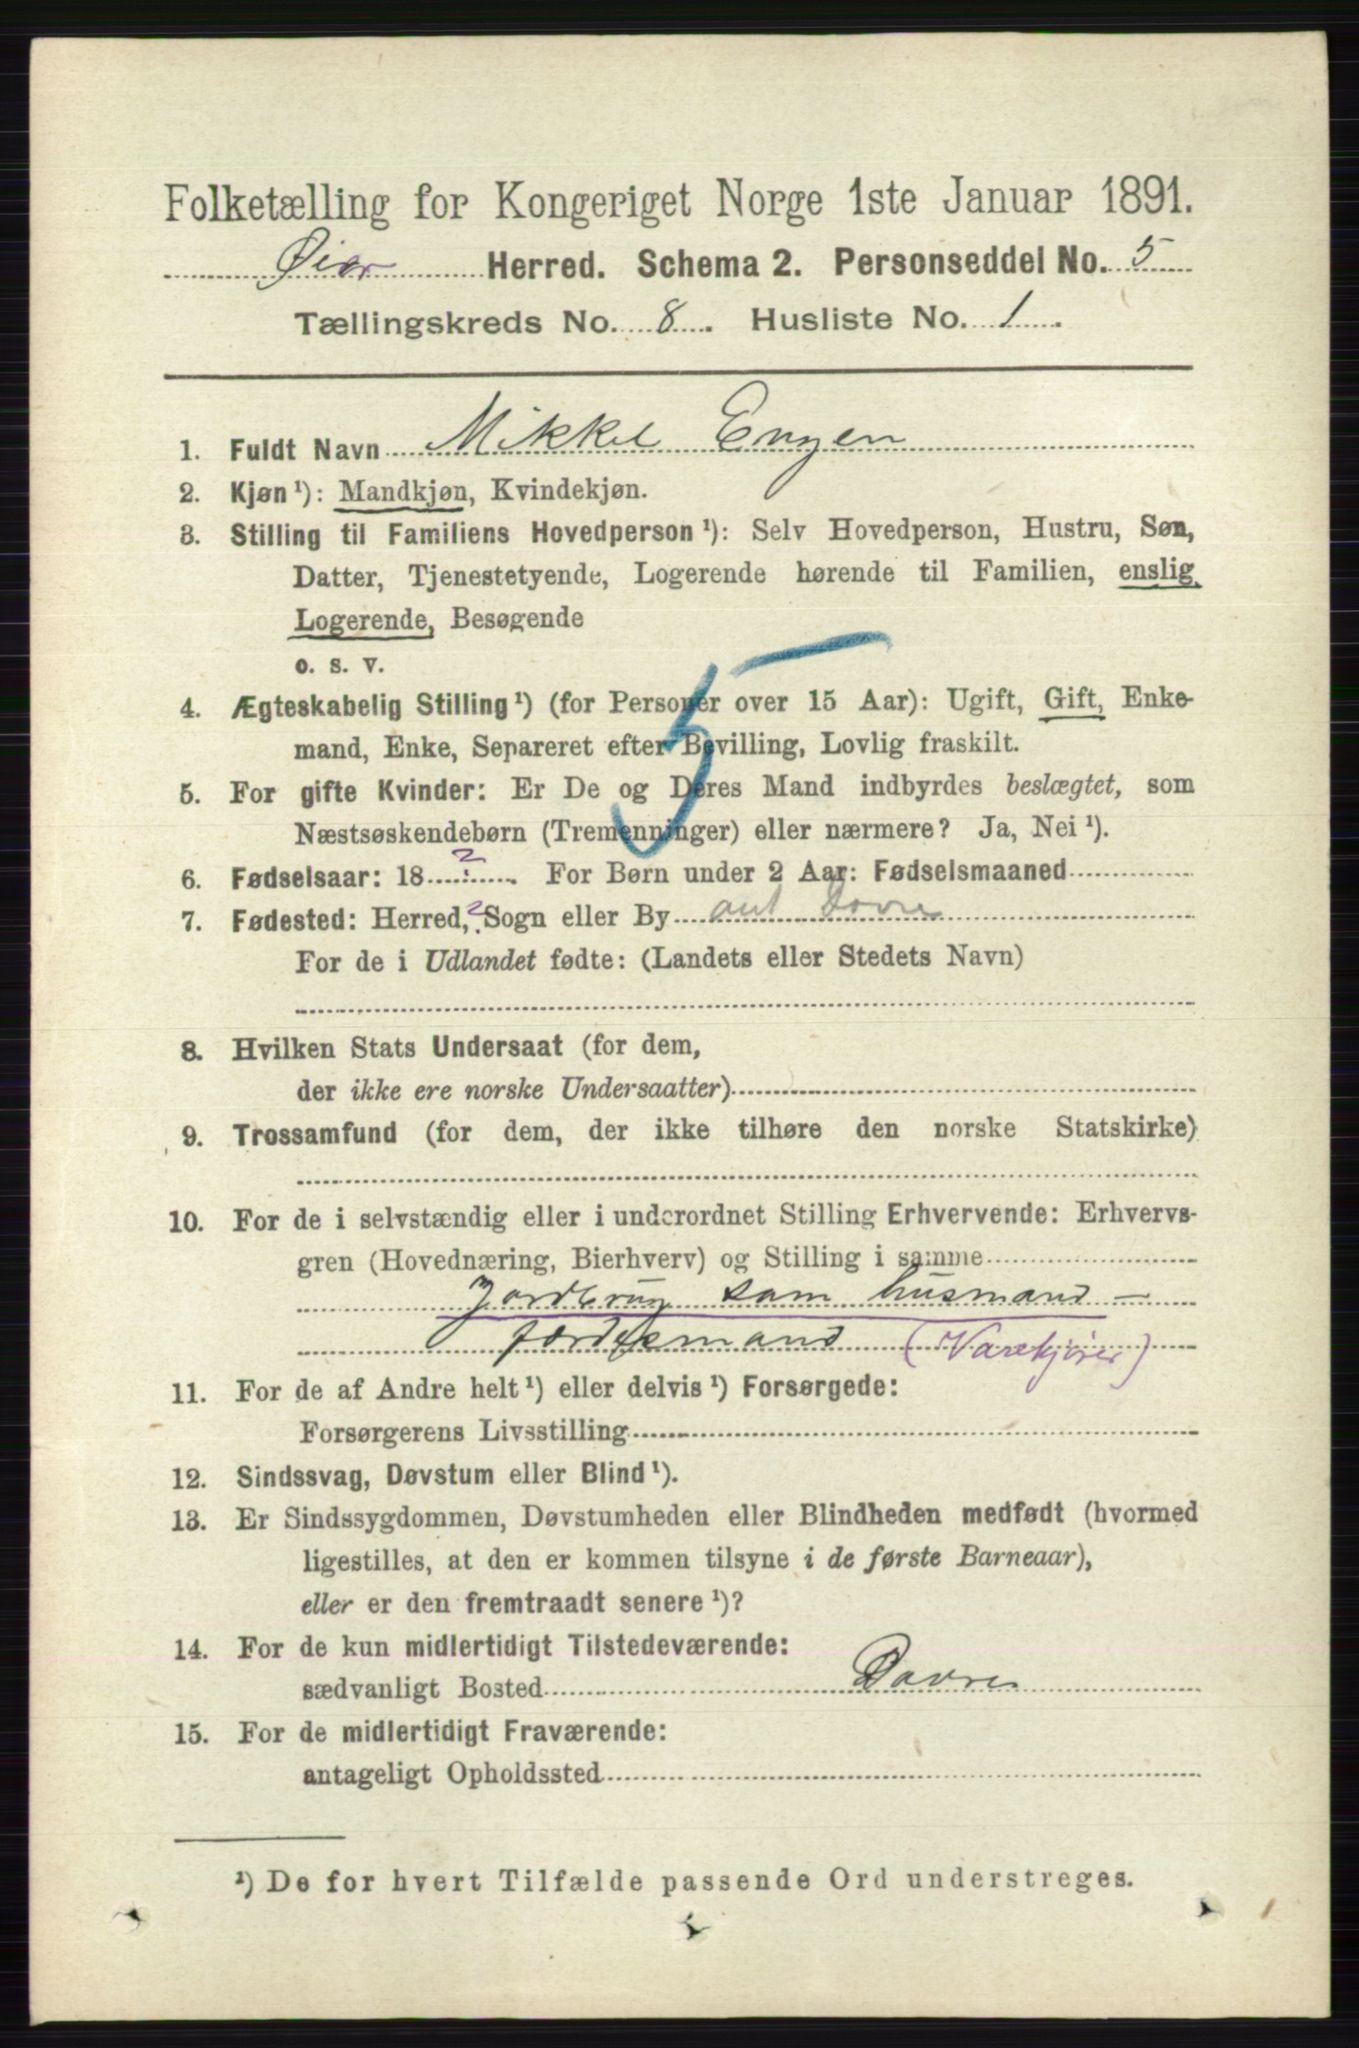 Folketælling for Kongeriget Norge 1ste Januar 1891.
Øier Herred. Schema 2. Personseddel No. 5
Tællingskreds No. 8. Husliste No. 1.
1. Fuldt Navn Mikkel Engen
2. Kjøn ¹): Mandkjøn, Kvindekjøn.
3. Stilling til Familiens Hovedperson ¹): Selv Hovedperson, Hustru, Søn,
Datter, Tjenestetyende, Logerende hørende til Familien, enslig
Logerende, Besøgende
o. s. v.
5
4. Ægteskabelig Stilling ¹) (for Personer over 15 Aar): Ugift, Gift, Enke-
mand, Enke, Separeret efter Bevilling, Lovlig fraskilt.
5. For gifte Kvinder: Er De og Deres Mand indbyrdes beslægtet, som
Næstsøskendebørn (Tremenninger) eller nærmere? Ja, Nei ¹).
6. Fødselsaar: 18 ?. For Børn under 2 Aar: Fødselsmaaned
7. Fødested: Herred, ? Sogn eller By ant Dovre
For de i Udlandet fødte: (Landets eller Stedets Navn)
8. Hvilken Stats Undersaat (for dem,
der ikke ere norske Undersaatter)
9. Trossamfund (for dem, der ikke tilhøre den norske Statskirke)
10. For de i selvstændig eller i underordnet Stilling Erhvervende: Erhvervs-
gren (Hovednæring, Bierhverv) og Stilling i samme
Jordbrug som husmand –
(Varekjører)
11. For de af Andre helt ¹) eller delvis ¹) Forsørgede:
Forsørgerens Livsstilling
12. Sindssvag, Døvstum eller Blind ¹).
13. Er Sindssygdommen, Døvstumheden eller Blindheden medfødt (hvormed
ligestilles, at den er kommen tilsyne i de første Barneaar),
eller er den fremtraadt senere ¹)?
14. For de kun midlertidigt Tilstedeværende:
sædvanligt Bosted Dovre
15. For de midlertidigt Fraværende:
antageligt Opholdssted
¹) De for hvert Tilfælde passende Ord understreges.